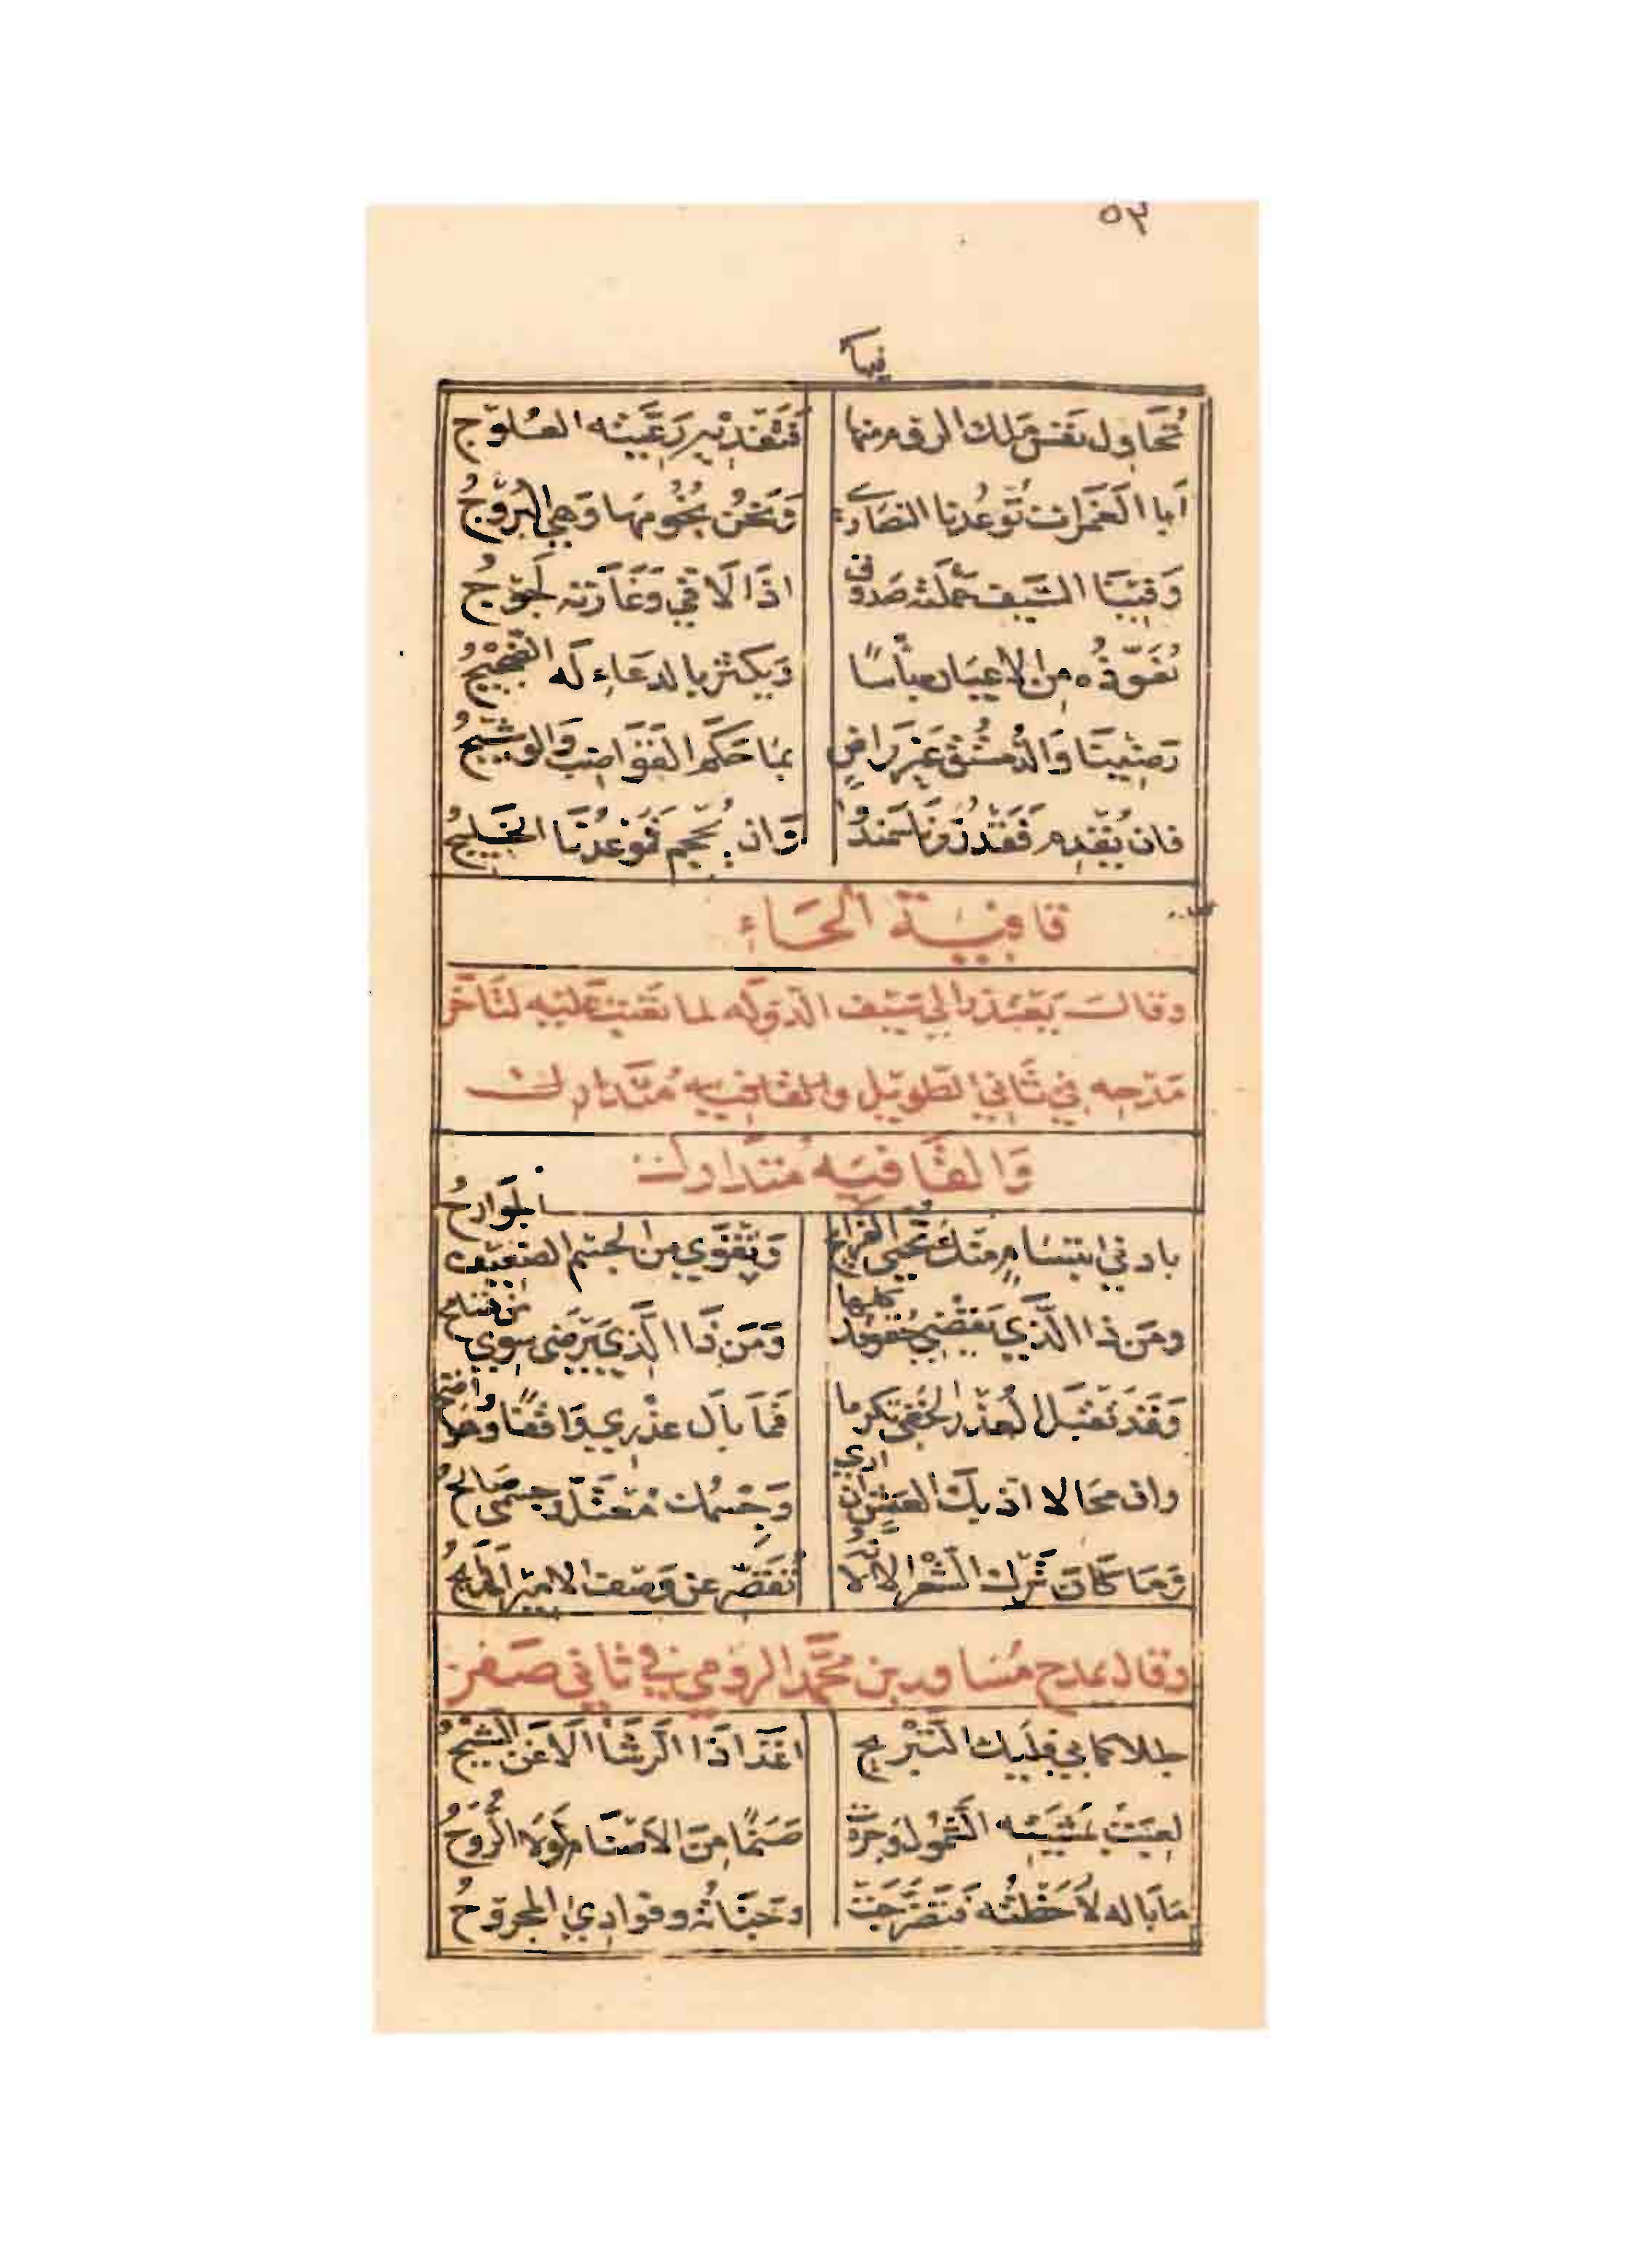 ٥٣
فيها
تُحَاول نَفسَ مَلك الروم منها فتفديه رعيّته العلوج
أبا الغَمَرات تُوعُدنا النصارى وَنَحْنُ نُجُومَها وَهيَ البُرُوجُ
وَفِينَا السَّيف حَملَته صَدوق اذَا لَا قي وَغَارَته لَجُوجُ
نُعَوّذُه مِن الاعيَان بأسًا وَيكثر بالدعَاء لَه الضَّجِيجُ
رَضِينَا وَالدُّمسْتُق غَير رَاضٍ بمَا حَكَم القَوَاضِب وَالوشِيجُ
فان يُقدِم فَقَدْ زُرنَا سَمَندُوا وَان يُحْجِم فَمَوعُدنَا الخَليجُ
قافِيَة الحَاءِ
وقال يَعتذر الي سَيف الدَّوله لما تعتب عَليه لتَاخر
مَدحِه في ثَاني الطَويل والقافِيه مُتَدارك
وَالقَافِيَه مُتدارك
بادني ابتسَامٍ منك تُحيى القرائح وَتَقْوي من الجسْم الضعيف الجَوارحُ
ومَن ذا الَّذي يَقْضي حُقوقك كلها وَمَن ذَا الَّذي يَرضَى سِوي من تسَامح
وَقَد تقبَل العُذر الخفى تكرما فَمَا بَال عذْرِي وَاقفًا وهَو واضح
وان محَالا اذ بك العَيش ان اري وَجِسْمك مُعْتَل وجسمى صَالحُ
وَمَا كَانَ تَركِ الشعْر الا لانه تُقَصّر عن وَصف الامير المَدايحُ
وقال يمدح مُسَاور بن محَمَّد الرومي في ثاني صَفر
جللا كما بي فليَك التَبْريح اغذَا ذَا الرشَأ الاغَن الشِيْحُ
لعِبَتْ بمشيَته الشَّمُول وَجرت صَنَمًا مِنَ الاصنَام لَولَا الرُّوحُ
مَا بَاله لَاحَظْتُه فَتَضَرَّجَتْ وَجَنَاتُه وفوادِي المجروحُ